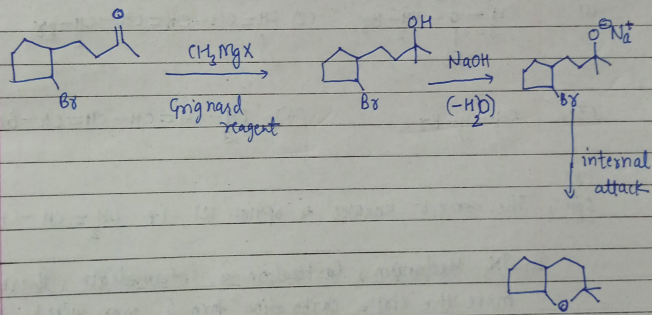 O
CH₃MgX
Grignard
reagent
Br
OH
Br
NaOH
(-H₂O)
O⊖Na⁺
Br
internal
attack
O